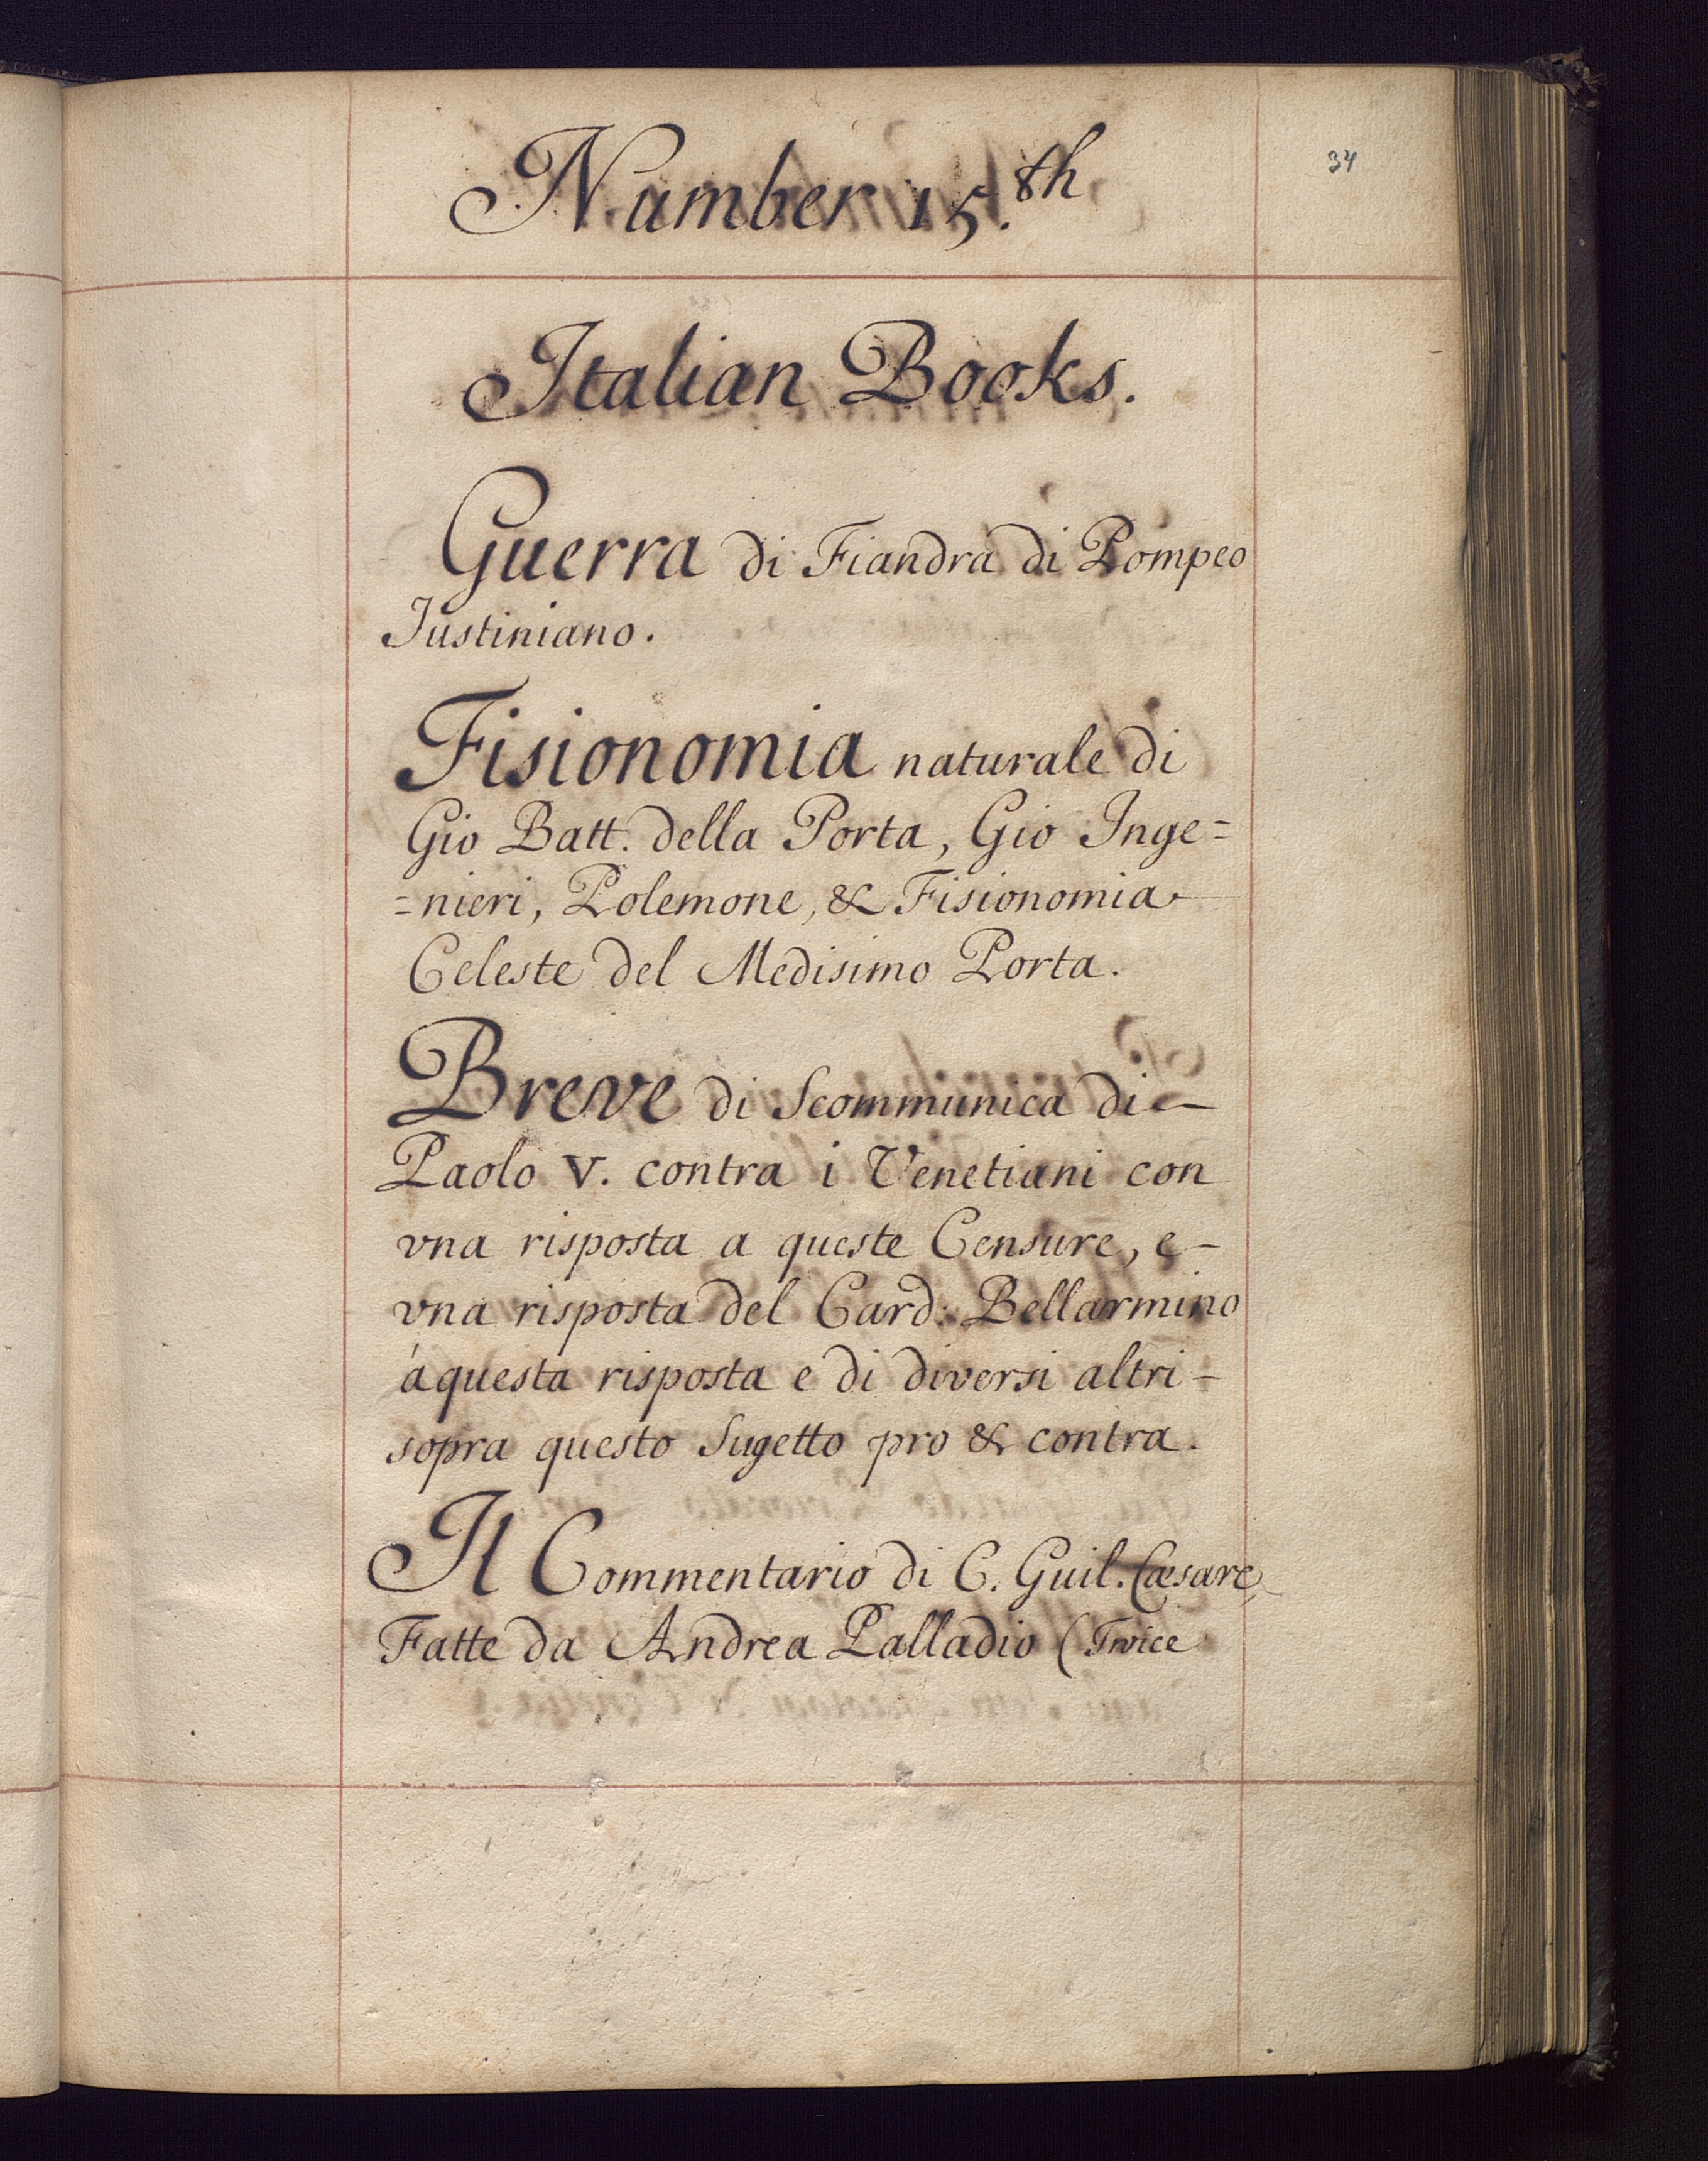 34
Number 15.th
Italian Books.
Guerra di Fiandra di Pompeo
Justiniano.
Fisionomia naturale di
Gio Batt. della Porta, Gio Inge=
=nieri, Polemone, & Fisionomia
Celeste del Medisimo Porta.
Breve di Scommunica di –
Paolo V. contra i Venetiani con
vna risposta a queste Censure, e –
vna risposta del Card: Bellarmino
á questa risposta e di diversi altri –
sopra questo Sugetto pro & contra.
Il Commentario di C. Guil. Cæsare,
Fatte da Andrea Palladio (Twice